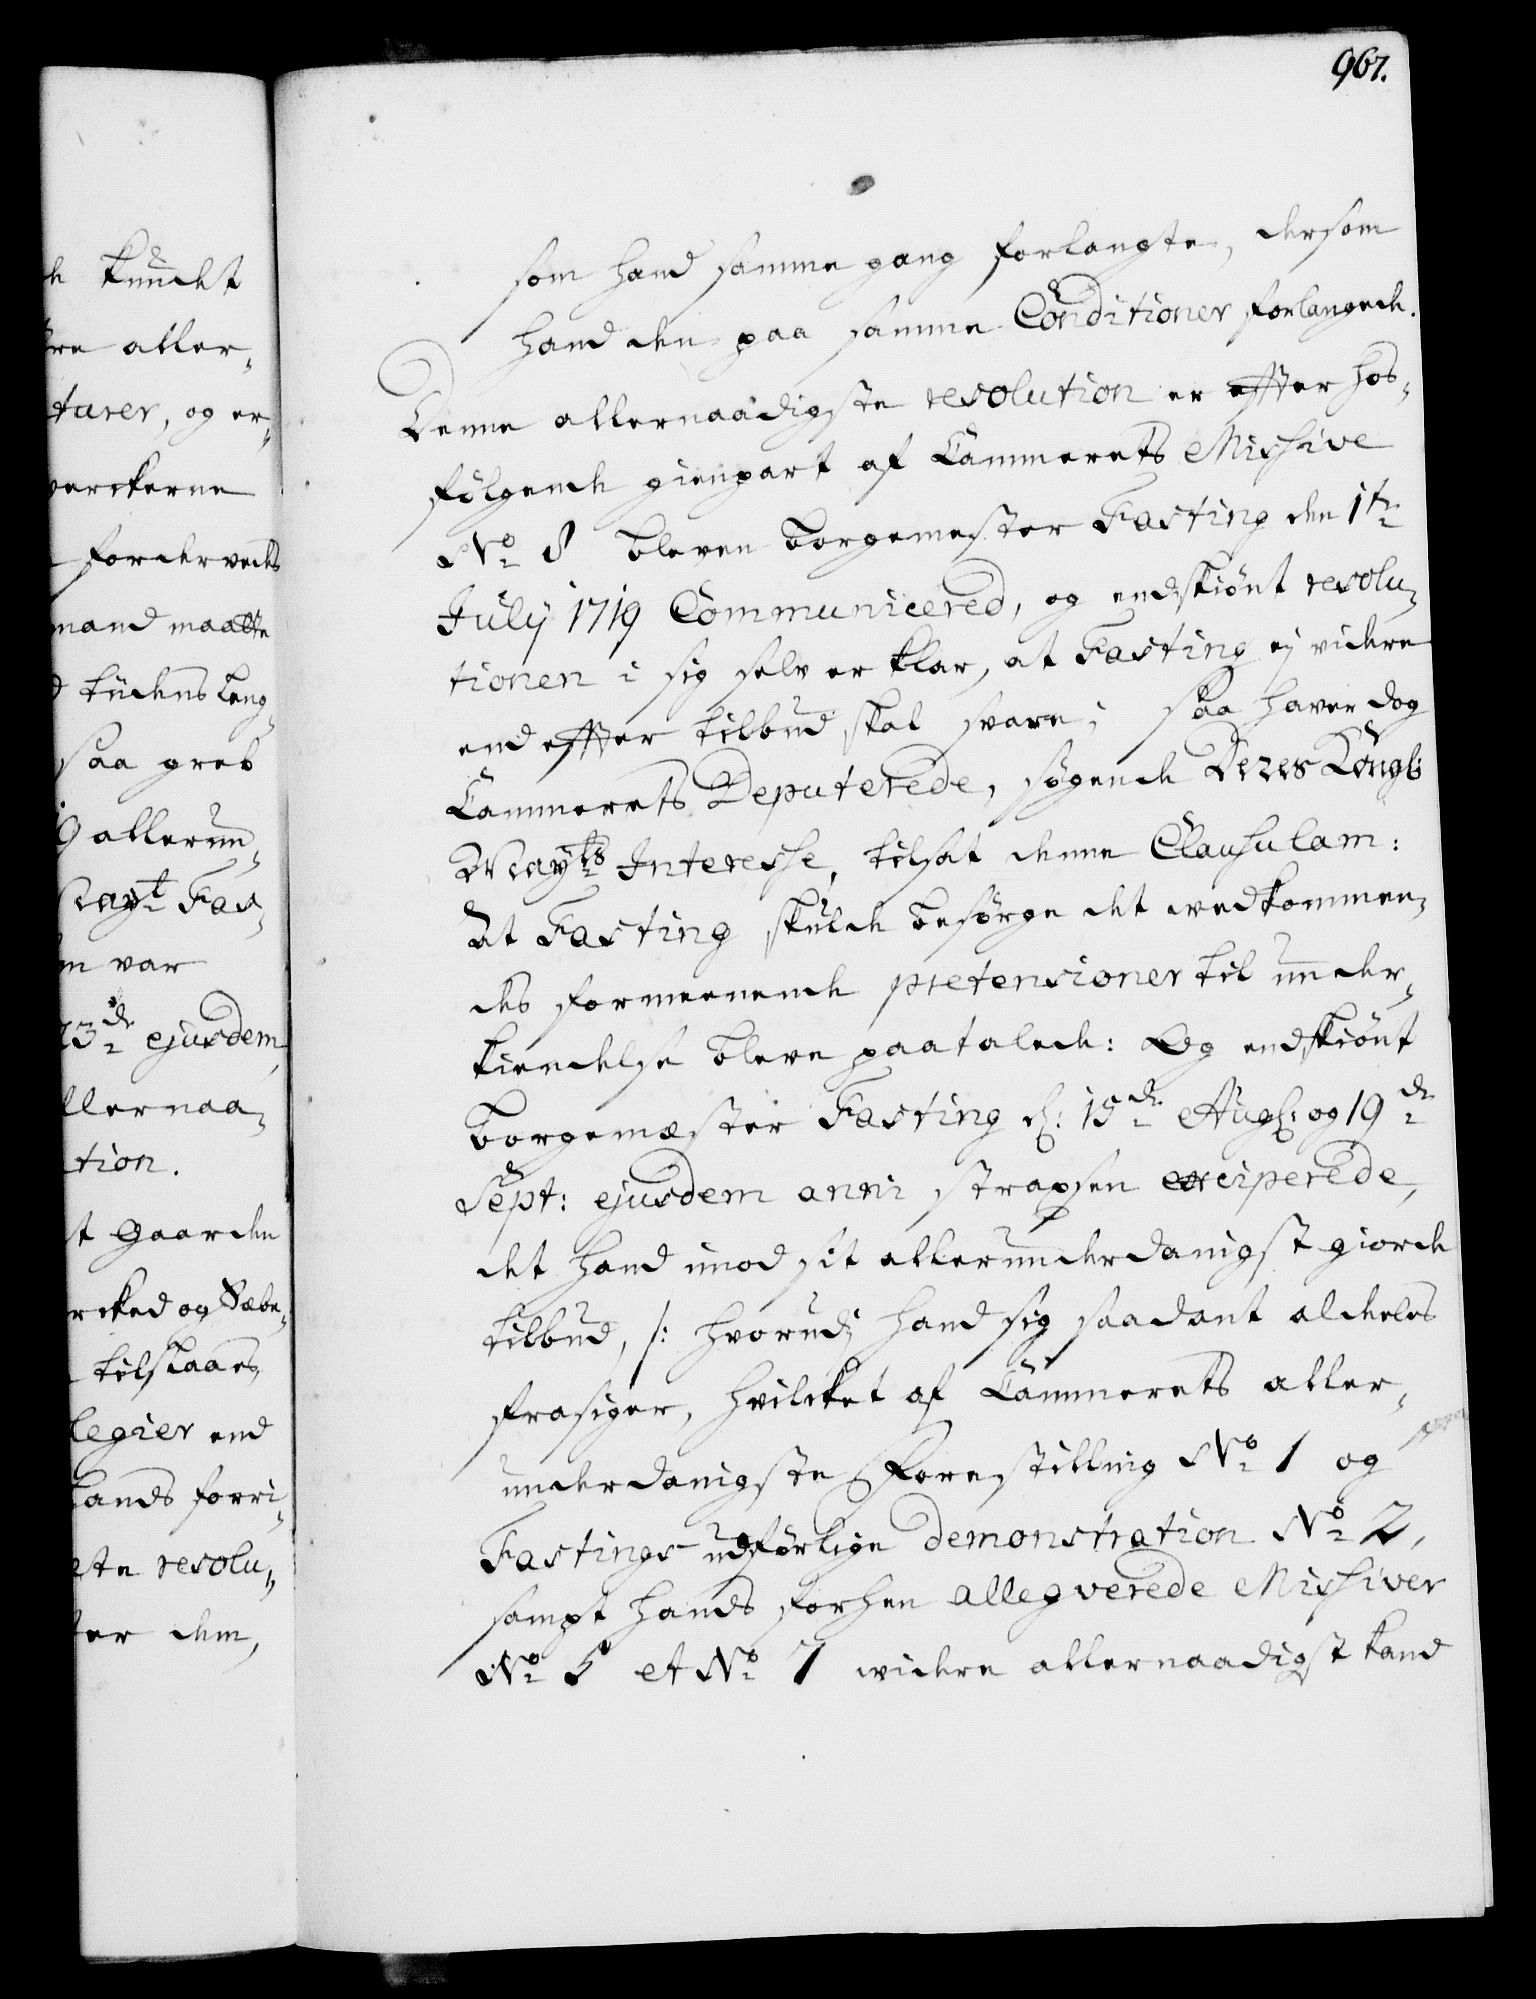 967.
som hand samme gang forlangte, dersom
hand den paa samme Conditioner forlangede.
Denne allernaadigste resolution er effter hos-
følgende gienpart af Cammerets Missive
No 8 bleven Borgemester Fasting den 1te
July 1719 Communicered, og endskiønt resolu-
tionen i sig selv er klar, at Fasting ej videre
end effter tilbud skal svare; saa haver dog
Cammerets Deputerede, søgende Deres Kongl:
Mayts Interesse, tilsat denne Clausulam:
At Fasting skulde besørge det wedkommen-
des formeenende prætensioner til under-
kiendelse bleve paatalede: Og endskiønt
Borgemæster Fasting d: 15de Augs: og 19de
Sept: ejusdem anni strapsen exciperede,
det hand imod sit allerunderdanigst giorde
tilbud, /: hvorudj hand sig saadant aldeles
frasiger, hvilcket af Cammerets aller-
underdanigste Forestilling No 1 og
Fastings udførlige demonstration No 2,
sampt hands forhen allegverede Missiver
No 5 et No 7 widere allernaadigst kand
de kundet
aller-
turer, og er-
verckerne
fordervede
mand maatte
tiidens leng-
saa greb
9 allerun-
Mayt Fas-
var
23de ejusdem
allernaa-
tion.
Gaarden
og Sæbe-
tilstaaes
legier end
lands forri-
resolu-
dem,